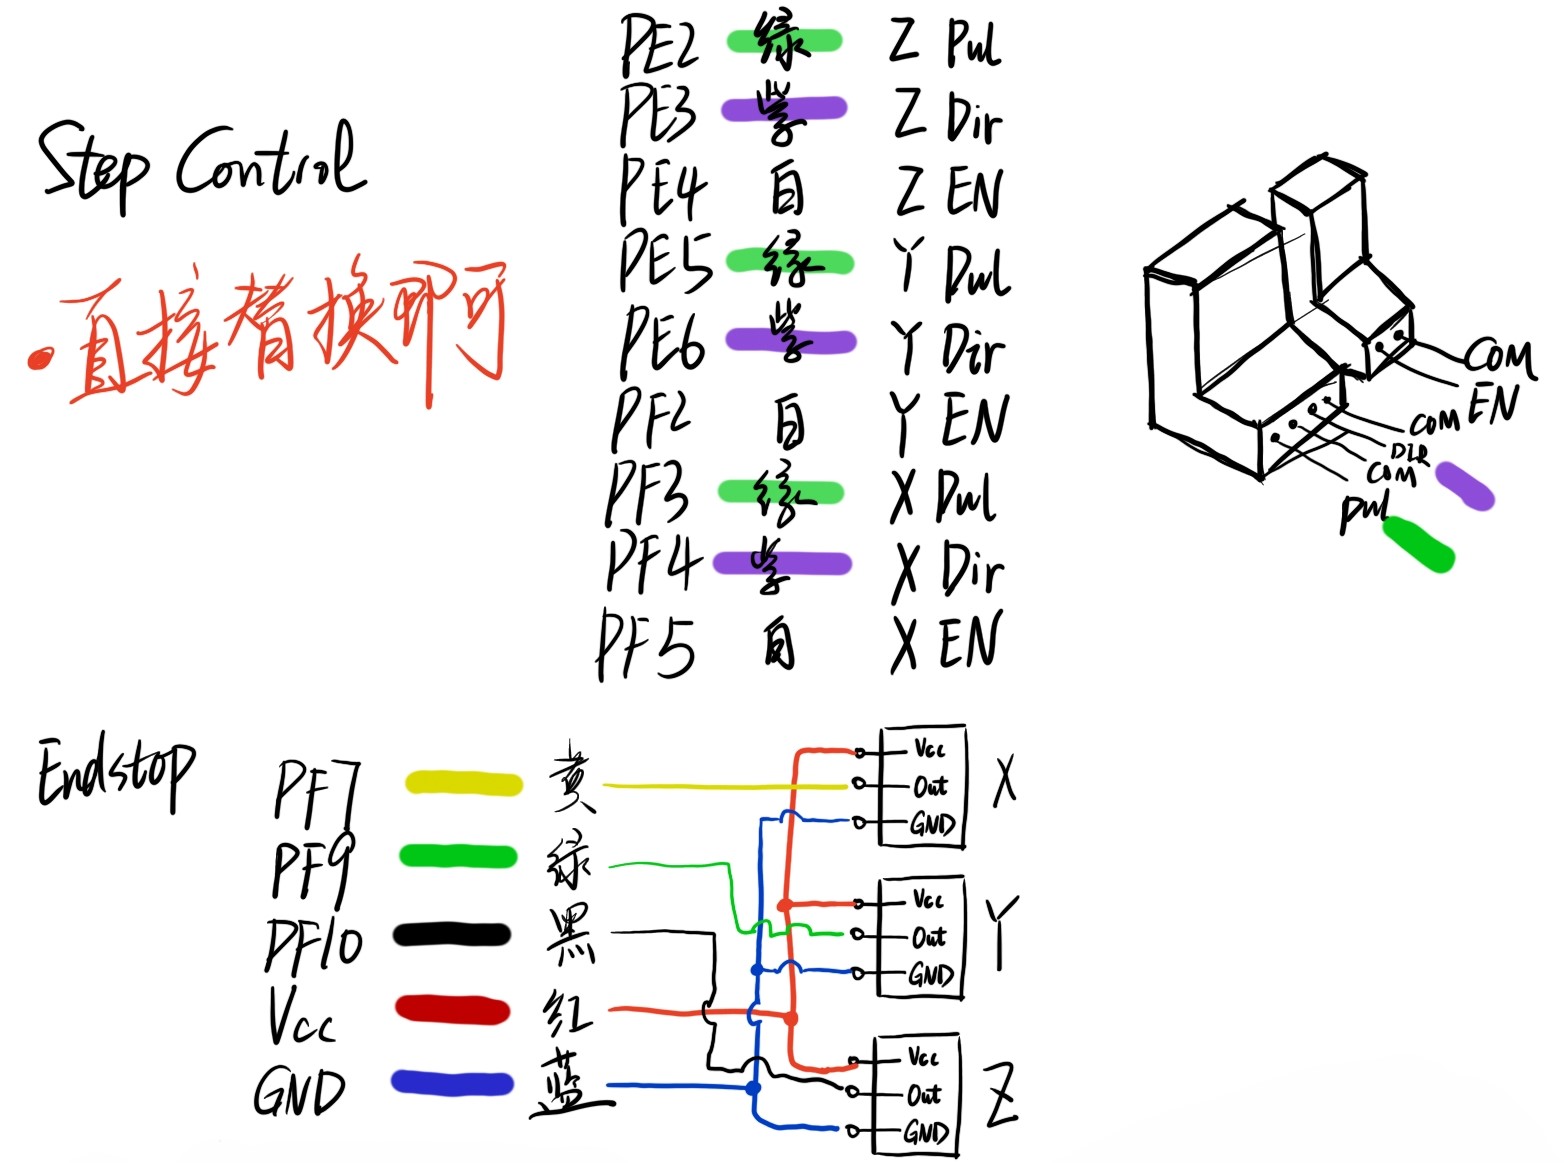 Step Control
直接替换即可
PE2 绿 Z Pul
PE3 紫 Z Dir
PE4 白 Z EN
PE5 绿 Y Pul
PE6 紫 Y Dir
PF2 白 Y EN
PF3 绿 X Pul
PF4 紫 X Dir
PF5 白 X EN
COM
EN
COM
DIR
COM
Pul
Endstop
PF7 黄
PF9 绿
PF10 黑
Vcc 红
GND 蓝
Vcc
Out
GND
X
Vcc
Out
GND
Y
Vcc
Out
GND
Z